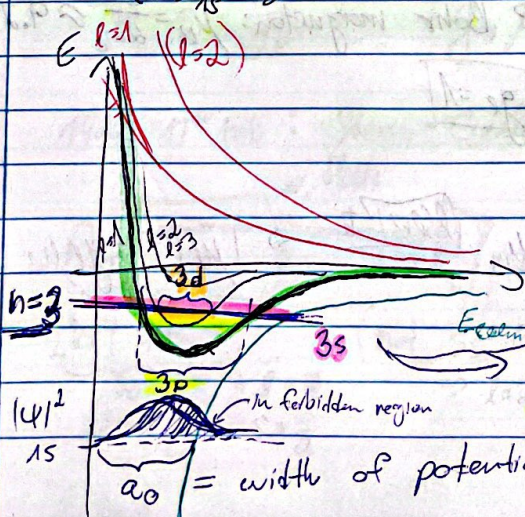 E l=1 (l=2)
l=1 l=2
l=3
3d
n=3
3s
3p
|ψ|² in forbidden region
1s
a₀ = width of potenti